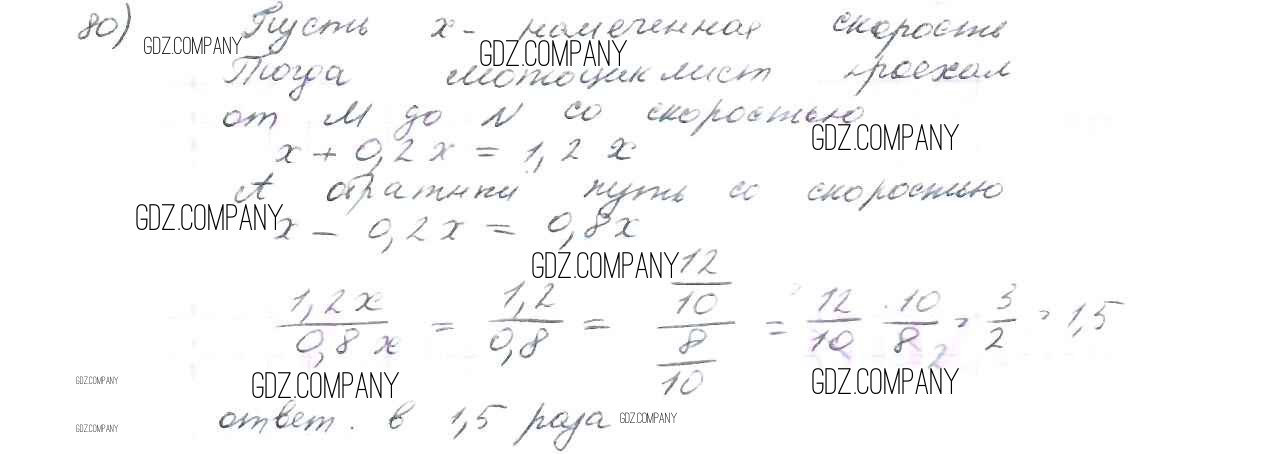 80) Пусть x - намеченная скорость
GDZ.COMPANY GDZ.COMPANY
Тогда мотоциклист проехал
от M до N со скоростью
GDZ.COMPANY
x + 0,2x = 1,2 x
А обратный путь со скоростью
GDZ.COMPANY
x - 0,2x = 0,8x
GDZ.COMPANY
1,2x / 0,8x = 1,2 / 0,8 = 12/10 / 8/10 = 12/10 · 10/8 2 = 3/2 = 1,5
GDZ.COMPANY GDZ.COMPANY GDZ.COMPANY
ответ. в 1,5 раза GDZ.COMPANY
GDZ.COMPANY